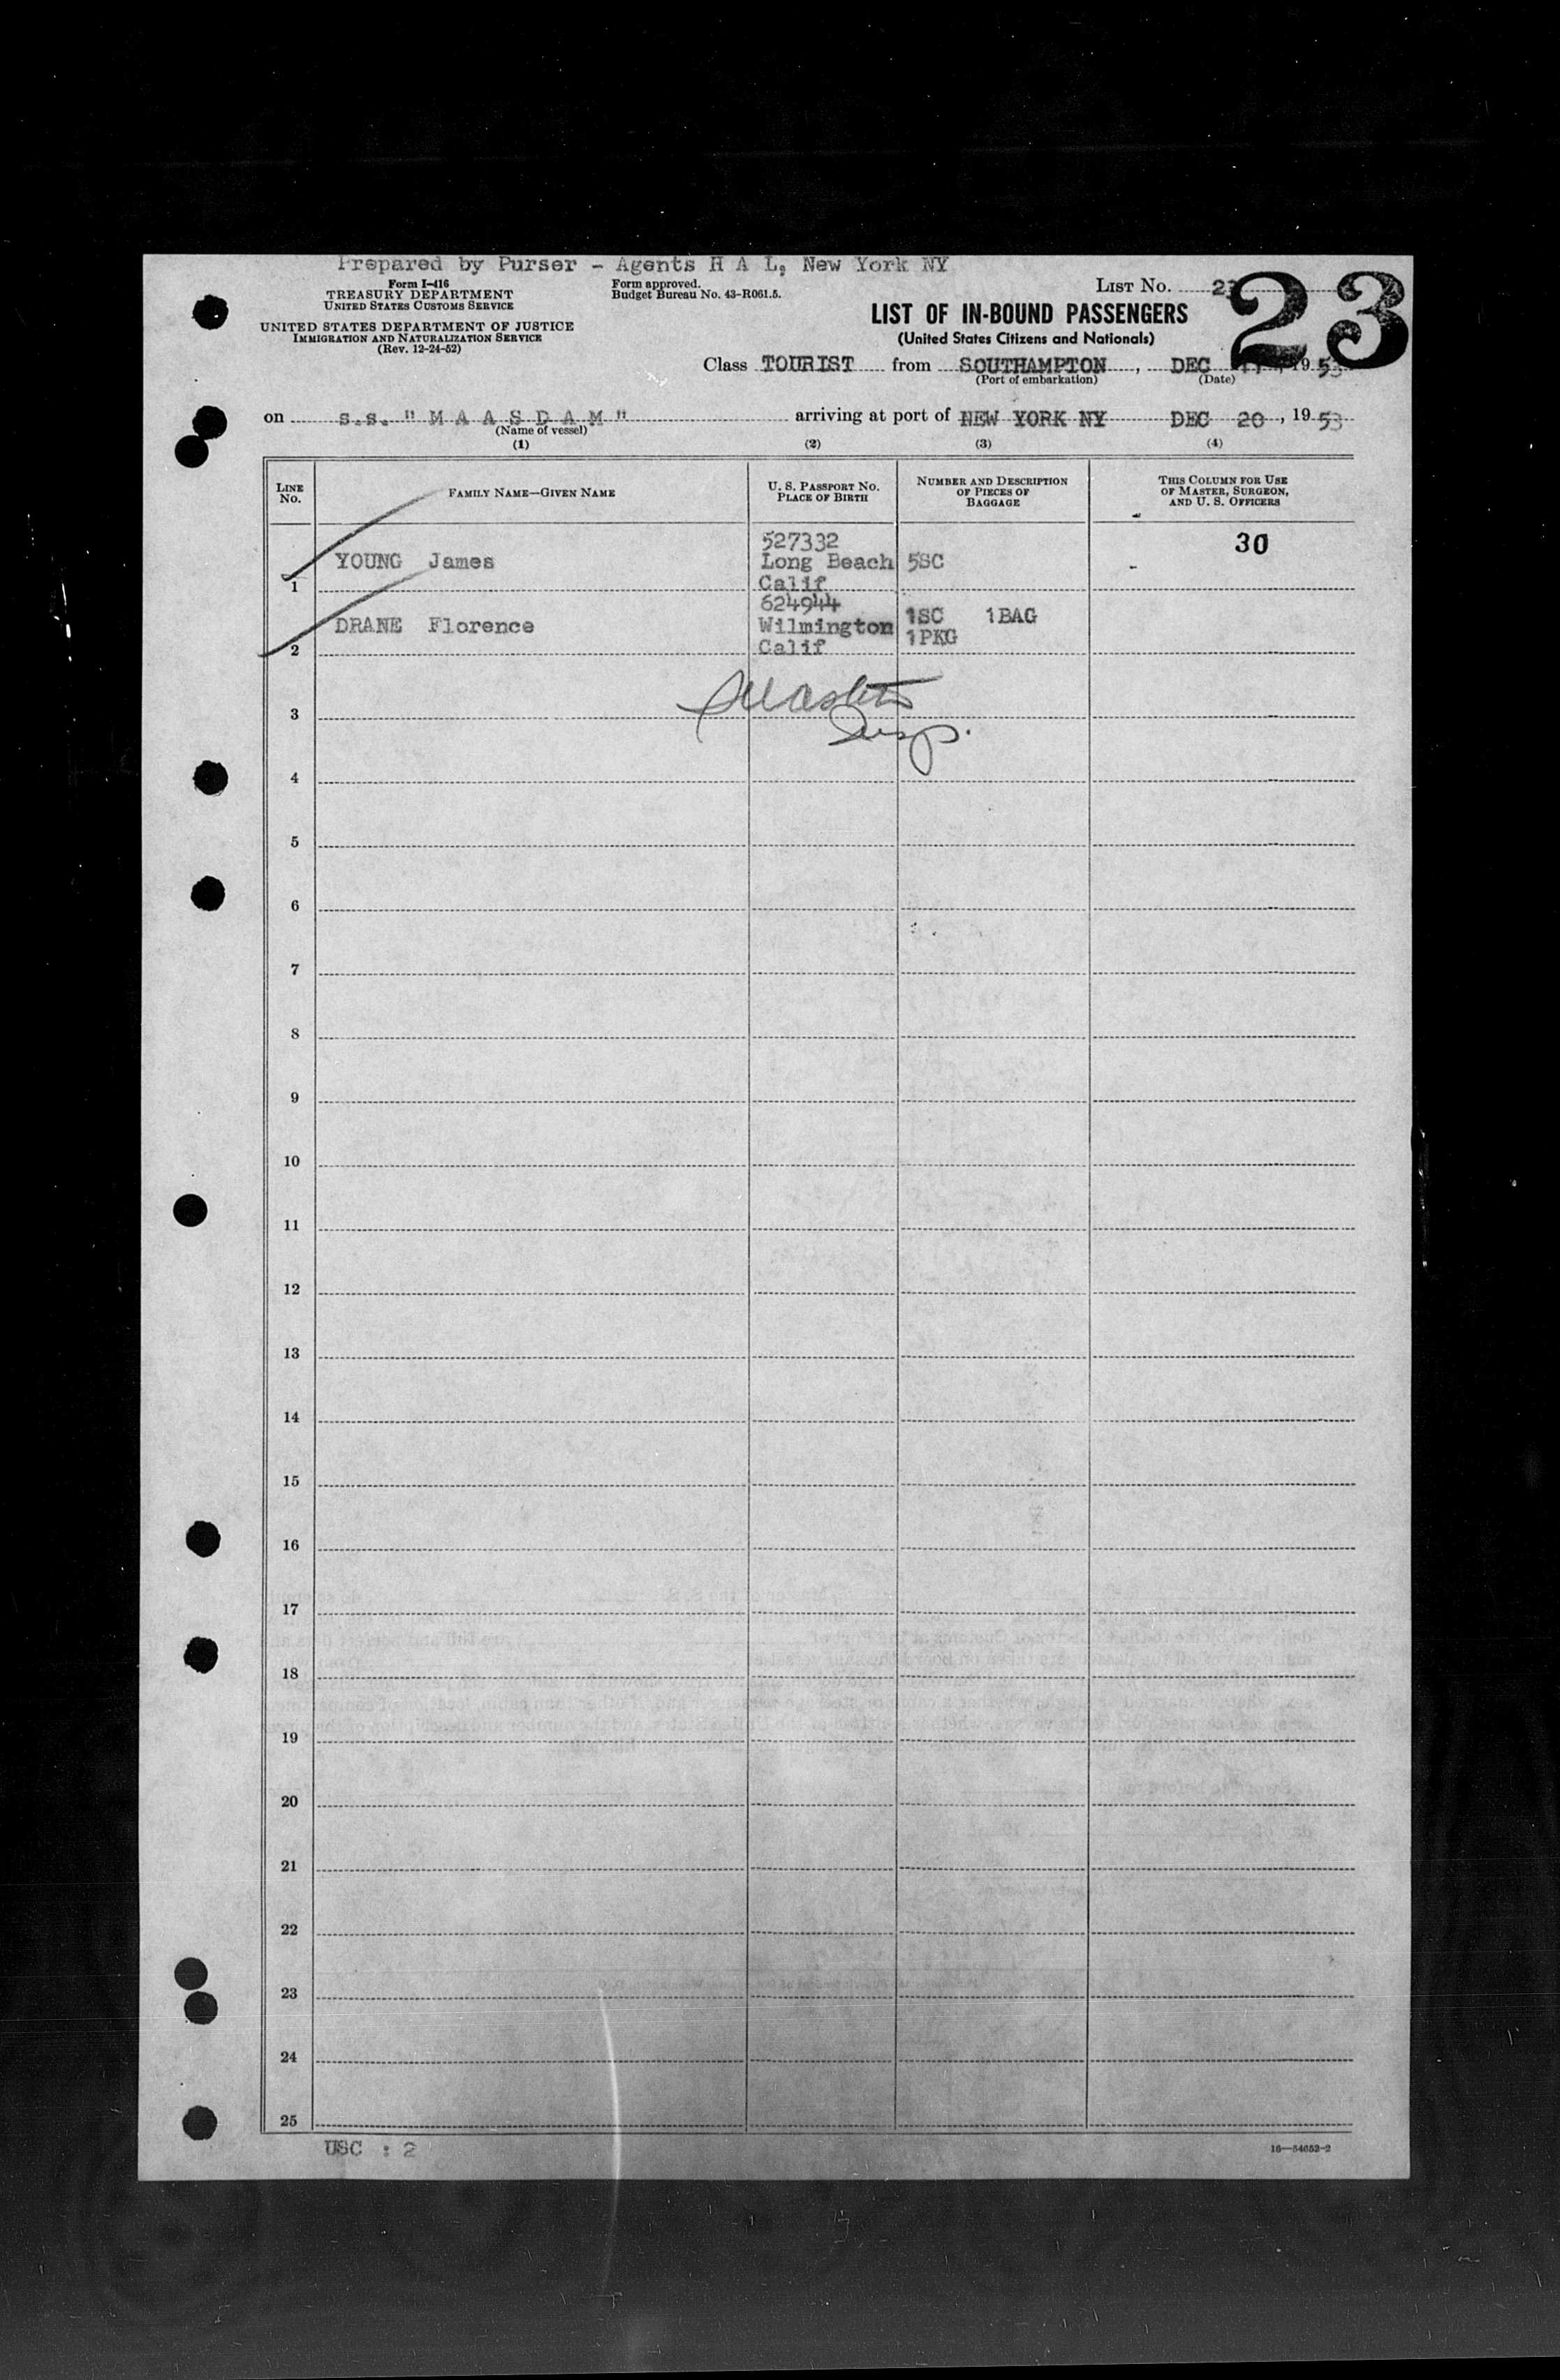 Prepared by Purser - Agents H A L, New York NY
Form I-416
TREASURY DEPARTMENT
UNITED STATES CUSTOMS SERVICE
UNITED STATES DEPARTMENT OF JUSTICE
IMMIGRATION AND NATURALIZATION SERVICE
(Rev. 12-24-52)
Form approved.
Budget Bureau No. 43-R061.5.
LIST No. 23
23
LIST OF IN-BOUND PASSENGERS
(United States Citizens and Nationals)
Class TOURIST from SOUTHAMPTON, DEC , 1953
(Port of embarkation) (Date)
on s.s. "M A A S D A M" arriving at port of NEW YORK NY DEC 20, 1953
(Name of vessel)
(1) (2) (3) (4)
LINE No.
FAMILY NAME—GIVEN NAME
U. S. PASSPORT No.
PLACE OF BIRTH
NUMBER AND DESCRIPTION
OF PIECES OF
BAGGAGE
THIS COLUMN FOR USE
OF MASTER, SURGEON,
AND U. S. OFFICERS
527332 30
YOUNG James Long Beach 5SC
1 Calif
624944
DRANE Florence Wilmington 1SC 1BAG
2 Calif 1PKG
3
Insp.
4
5
6
7
8
9
10
11
12
13
14
15
16
17
18
19
20
21
22
23
24
25
USC : 2
16—54652-2